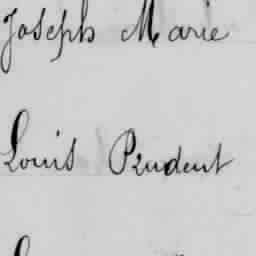 Joseph Marie
Louis Prudent